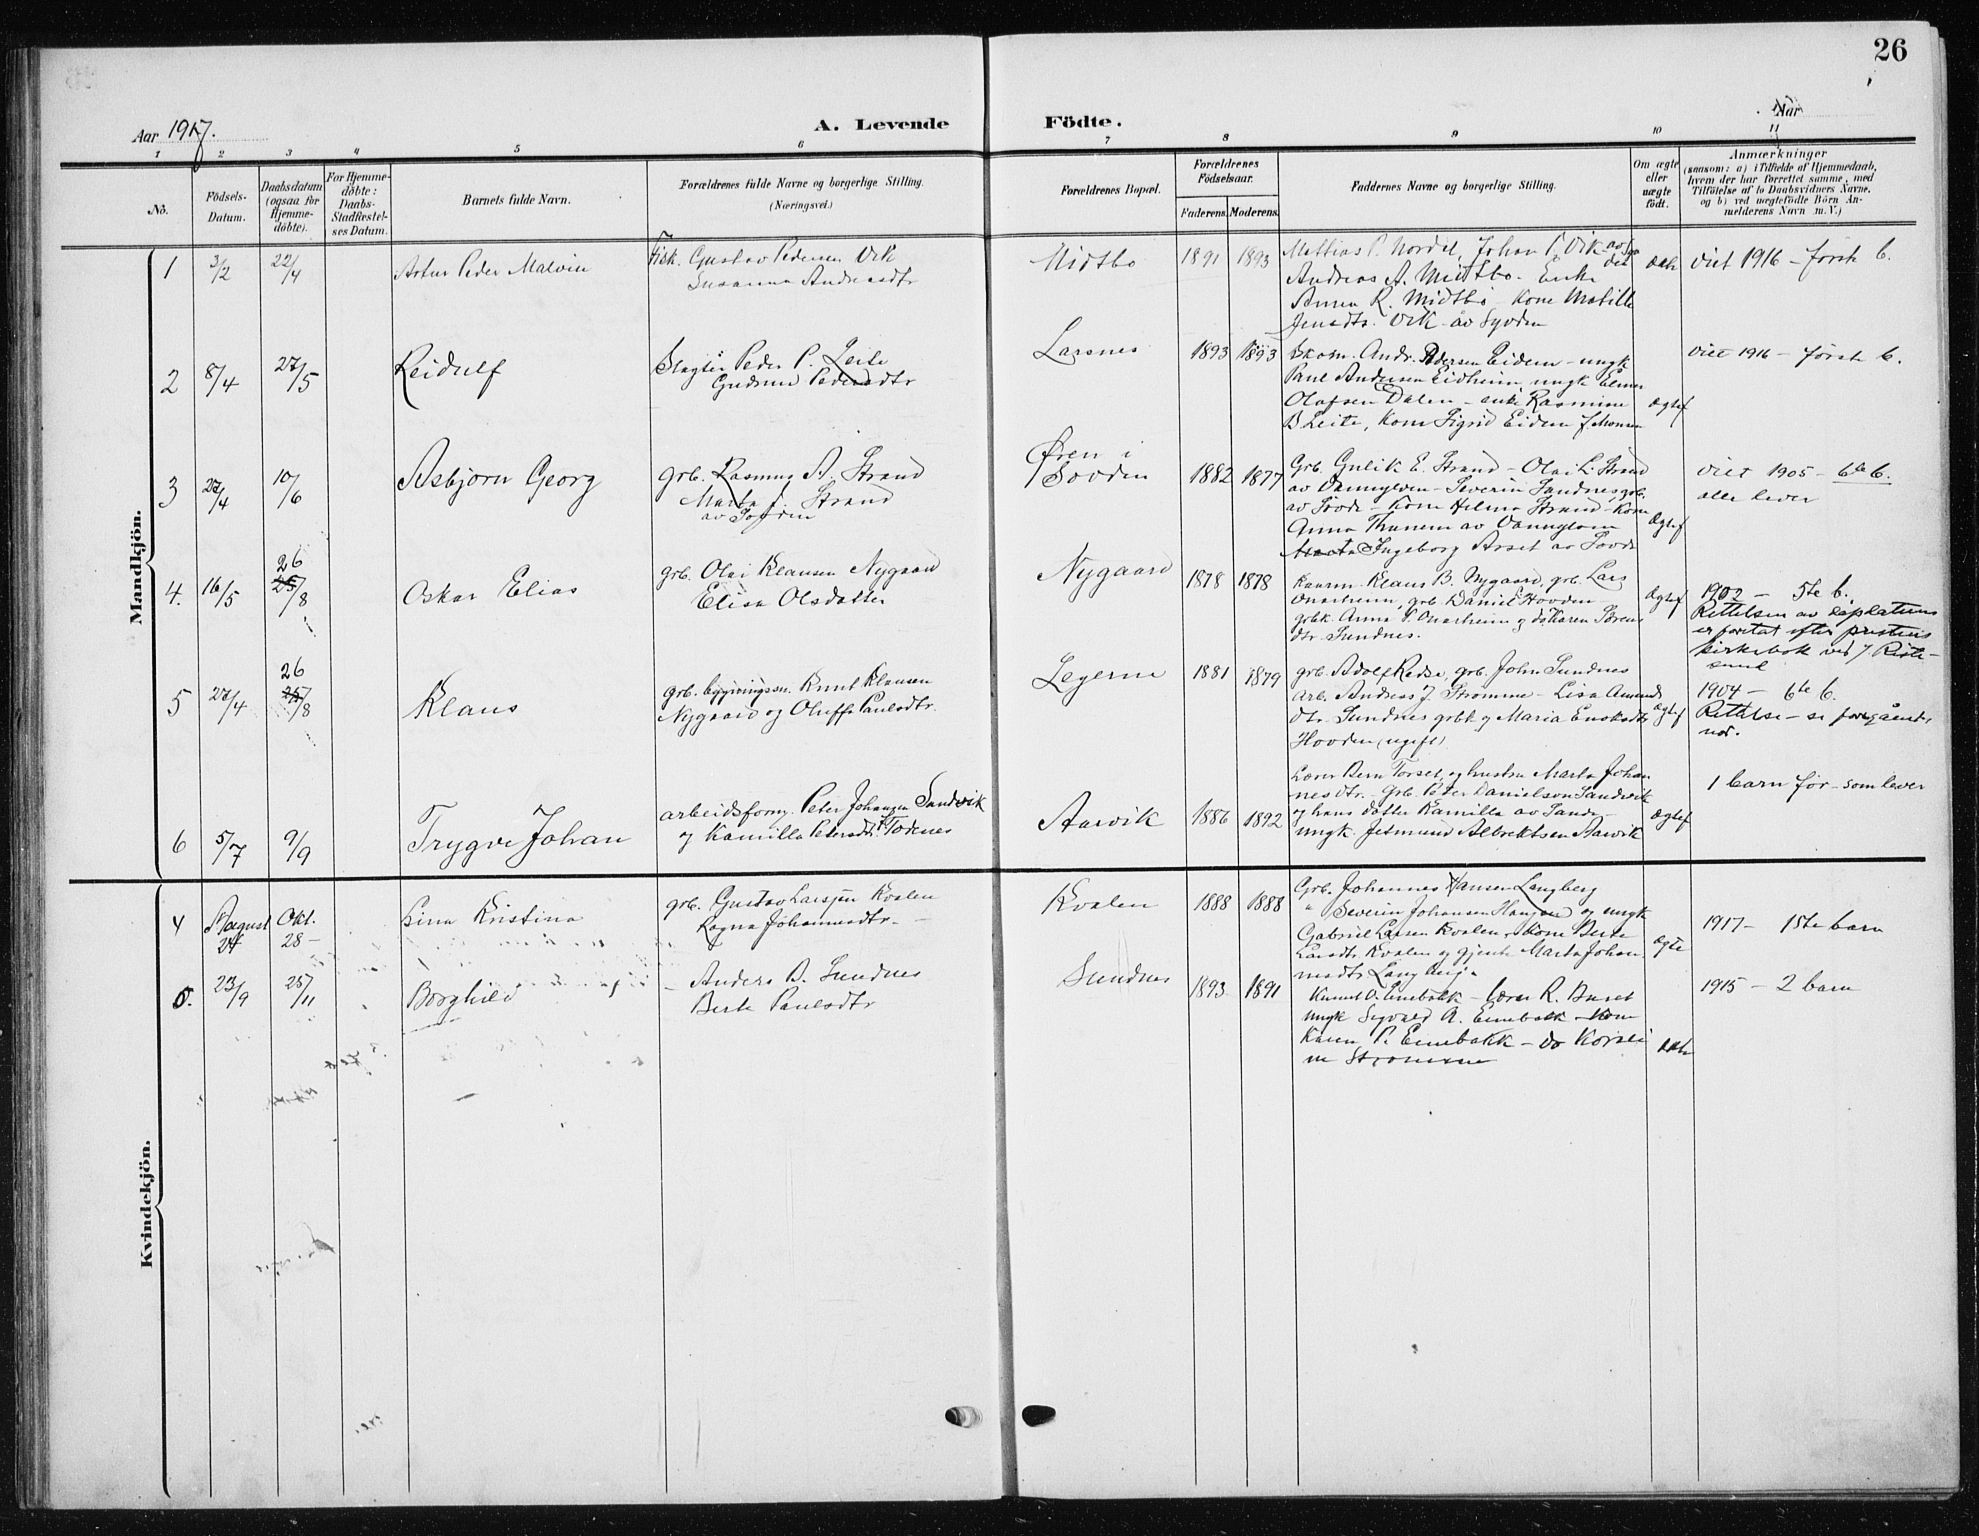 26
Aar 1917.
A. Levende Födte.
Aar
1 2 3 4 5 6 7 8 9 10 11
No.
Födsels-Datum.
Daabsdatum (ogsaa for Hjemme-döbte).
For Hjemme-döbte: Daabs-Stadfæstel-ses Datum.
Barnets fulde Navn.
Forældrenes fulde Navne og borgerlige Stilling.
(Næringsvei.)
Forældrenes Bopæl.
Forældrenes Födselsaar.
Faderens. Moderens.
Faddernes Navne og borgerlige Stilling.
Om ægte eller uægte födt.
Anmærkninger
(saasom: a) i Tilfælde af Hjemmedaab,
hvem der har forrettet samme, med
Tilföielse af to Daabsvidners Navne.
og b) ved uægtefödte Börn An-
melderens Navn m. V.)
Mandkjön.
1 3/2 22/4 Artur Peder Malvin
Fisk. Gustav Pedersen Vik
Susanna Andreasdtr
Midtbø 1891 1893
Mattias P. Nordal, Johan P. Vik
Andreas A. Midtbø - Enke
Anna R. Midtbø - Kone Matilde
Jensdtr. Vik av Syvden
viet 1916 - første b.
2 8/4 27/5 Reidulf
Slagter Peder P. Leite
Gudrun Pedersdtr
Larsnes 1893 1893
Skom. Andr. Pedersen Eidem - ungk
Paul Andersen Eidheim, ungk Elmer
Olafsen Dalen - enke Rasmine
B Leite, Kone Sigrid Eidem
Ægtef
viet 1916 - første b.
3 27/4 10/6 Asbjørn Georg
grb. Rasmus A. Strand
Marta J. Strand
Øren i
Søvden 1882 1877
Grb. Gulik E. Strand - Olai L. Strand
av Vannylven - Severin Sundnes grb.
av Søvde - Kone Helma Strand - Kone
Anna Thunem av Vannylven
Ingeborg Årset av Søvde
Ægtef
viet 1905 - 6te b.
alle lever
4. 16/5 26 25/8 Oskar Elias
grb. Olai Klausen Nygaard
Elisa Olsdatter
Nygaard 1878 1878
Kaarm. Klaus B. Nygaard, grb. Lars
Onarheim, grb Daniel Hovden
grbk. Anna P. Onarheim og do Karen Sørens
dtr. Sundnes.
Ægtef
1902 - 5te b.
Rettelsen av
er foretat efter prestens
kirkebok ved J. Riste-
sund
5 27/4 26 25/8 Klaus
grb. bygningssn. Knut Klausen
Nygaard og Oluffe Paulsdtr.
Legerne 1881 1879
grb. Adolf Redse, grb. John Sundnes
arb. Andreas J. Strømme - Lisa Amunds
dtr. Sundnes grbk og Maria
Hovden (ugift)
Ægtef
1904 - 6te b.
Rettelse - se foregående
no.
6 5/7 9/9 Trygve Johan
arbeidsform. Peter Johansen Sandvik
og Kamilla Petersdtr Todenes
Aarvik 1886 1892
Lærer Bern Torset, og hustru Marta Johan
nesdtr - Grb. Peter Danielson Sandvik
og hans datter Kamilla av Sande
ungk. Jetmund Albrektsen Aarvik
Ægtef
1 barn før - som lever
Kvindekjön.
4 August 24 Okt. 28 - Lina Kristina
grb. Gustav Larsen Kvalen
Ragna Johannesdtr. -
Kvalen 1888 1888
Grb. Johannes Hansen Langberg
" Severin Johansen Haugen og ungk
Gabriel Larsen Kvalen, kone Berte
Larsdtr Kvalen og gjente Marta Johan
nesdtr Langberg.
ægte
1917 - 1ste barn
5. 23/9 25/11 Borghild
Anders B. Sundnes
Berte Paulsdtr
Sundnes 1893 1891
Knut O. Einebakk - Lærer R. Buset
ungk Sigvald A. Einebakk - Kone
Karen P. Einebakk - do
1915 - 2 barn